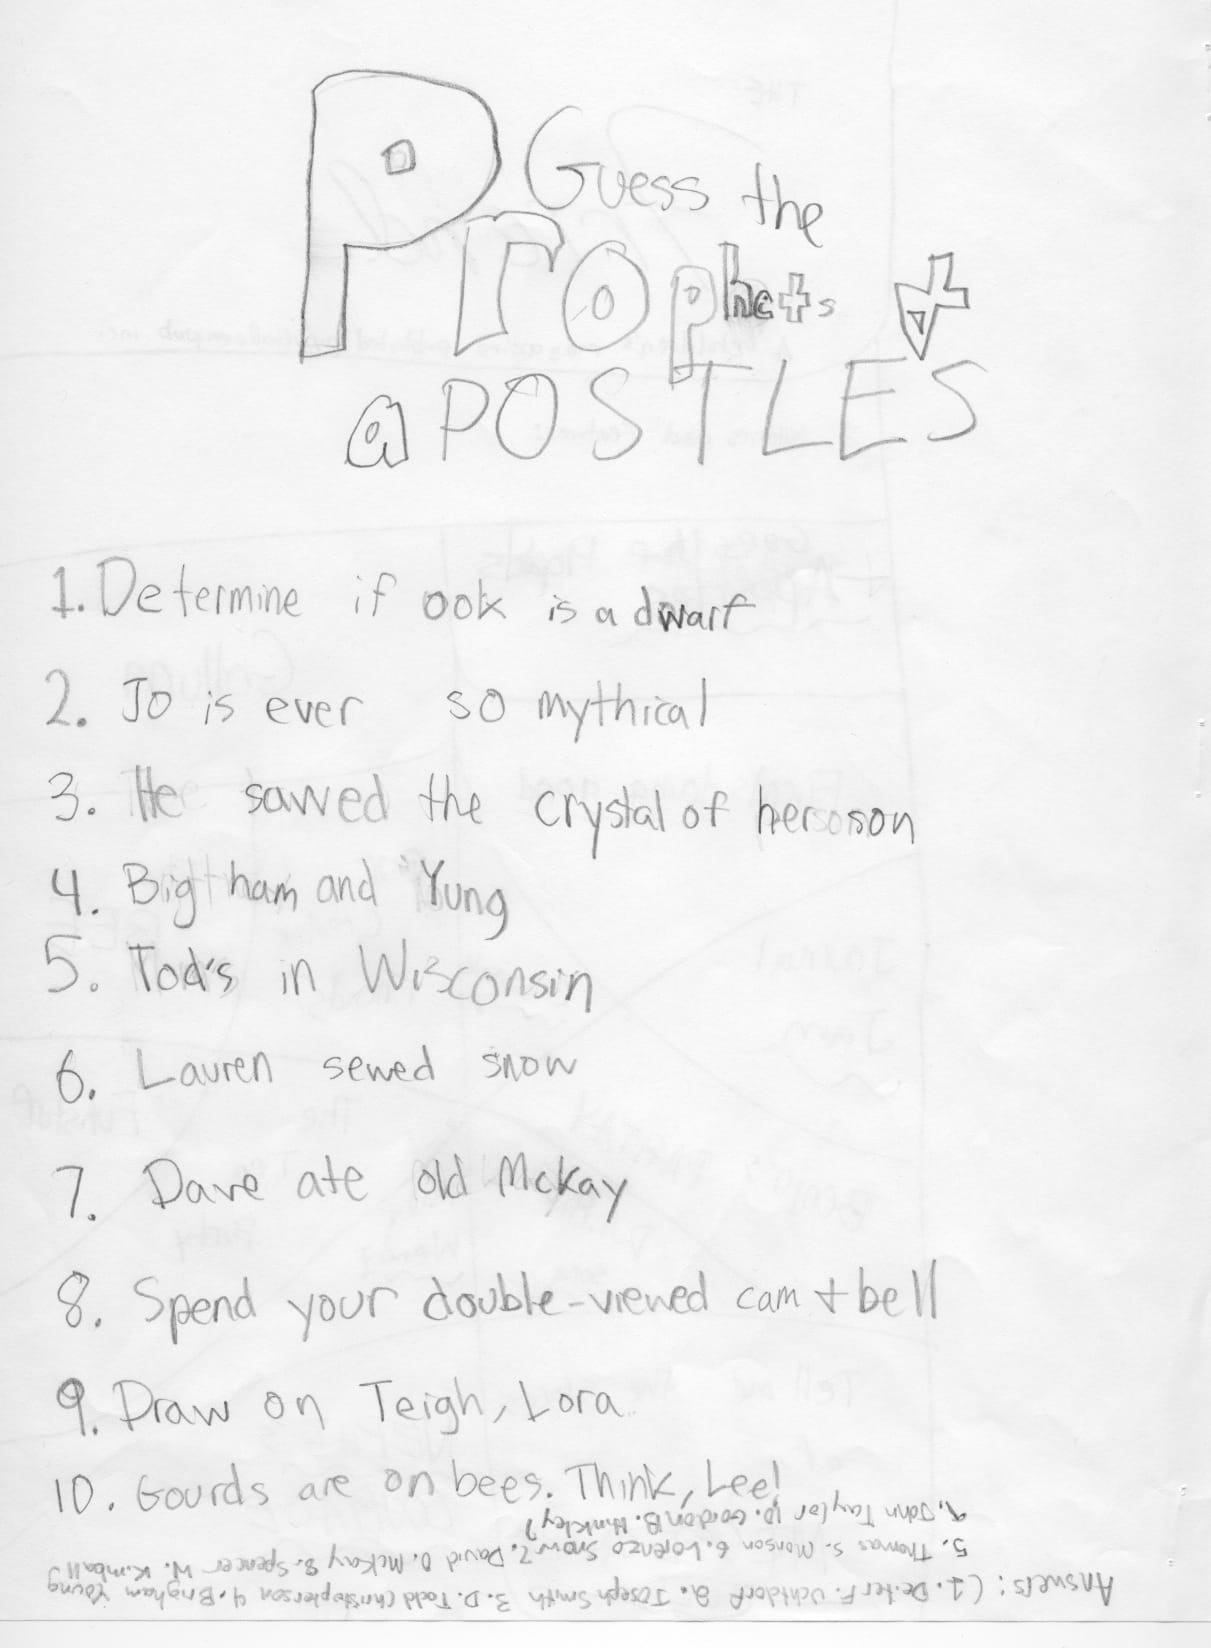 Guess the
Prophets &
aPOSTLES
1. Determine if ook is a dwarf
2. Jo is ever so mythical
3. He sawed the crystal of hersoson
4. Bigt ham and Yung
5. Tod's in Wisconsin
6. Lauren sewed snow
7. Dave ate old McKay
8. Spend your double-viewed cam + bell
9. Draw on Teigh, Lora
10. Gourds are on bees. Think, Lee!
Answers: (1. Deiter F. Uchtdorf 2. Joseph Smith 3. D. Todd Christopherson 4. Brigham Young
5. Thomas S. Monson 6. Lorenzo Snow 7. David O. McKay 8. Spencer W. Kimball
9. John Taylor 10. Gordon B. Hinkley)